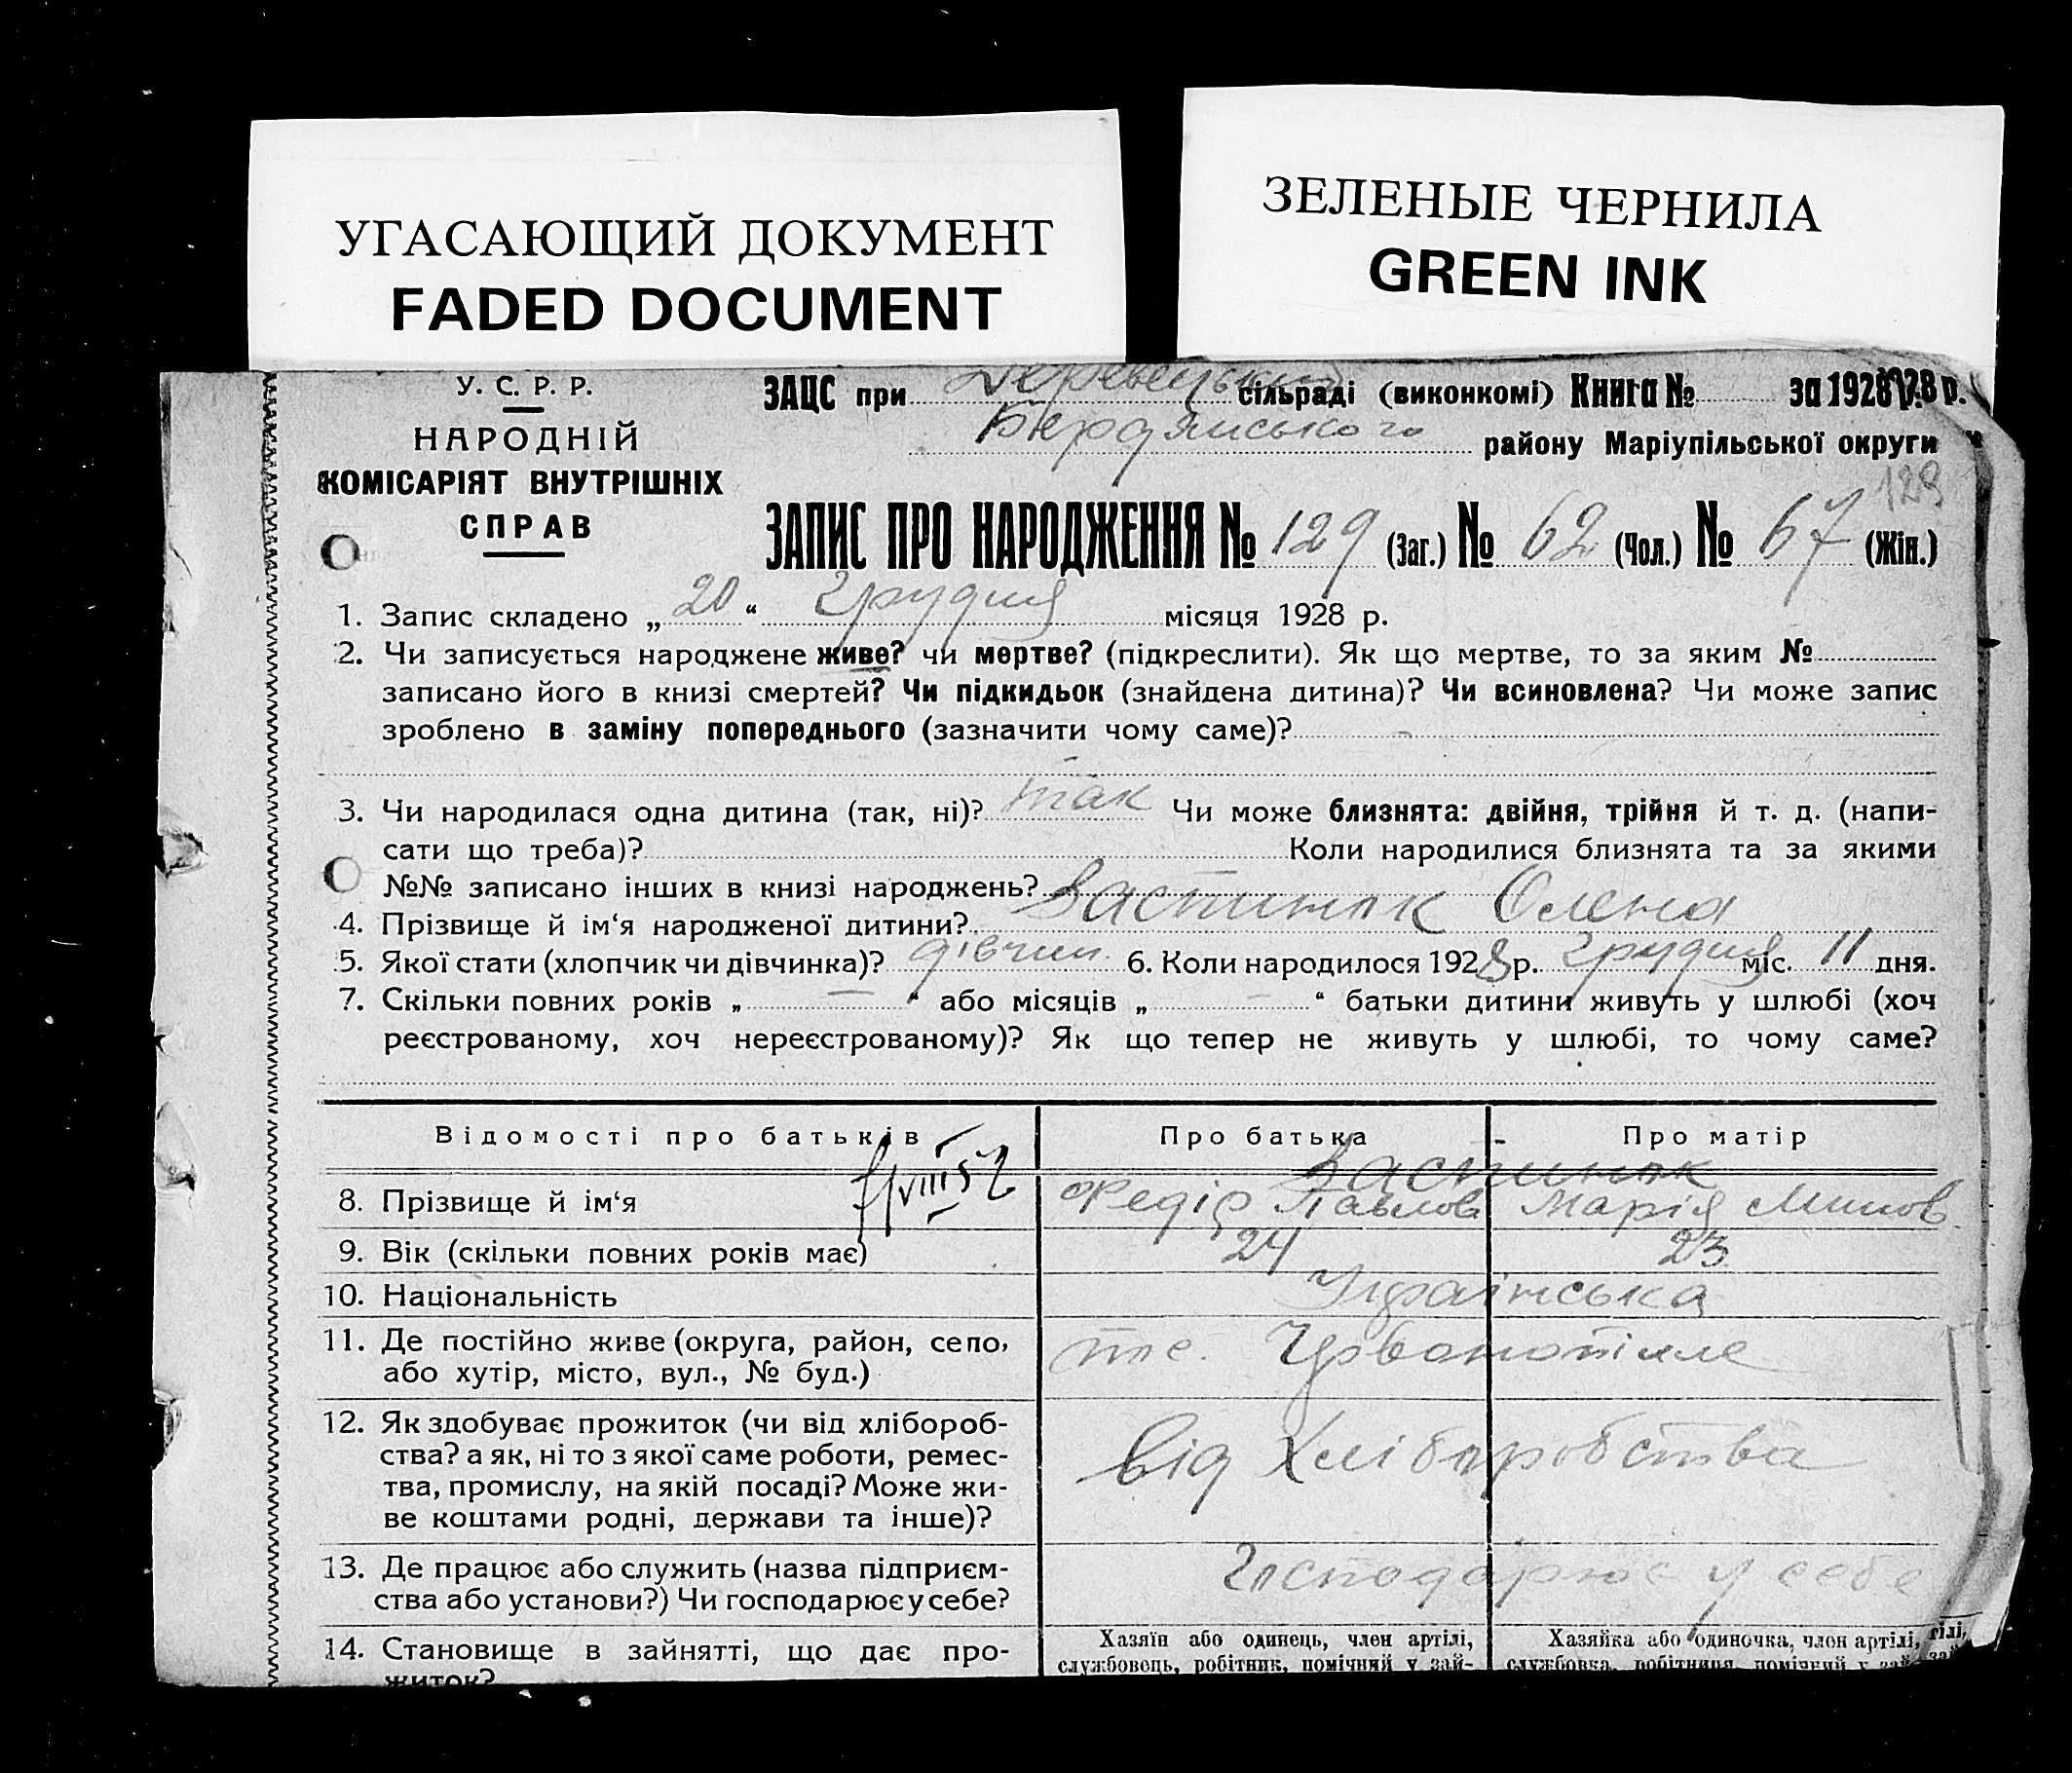 УГАСАЮЩИЙ ДОКУМЕНТ
FADED DOCUMENT
ЗЕЛЕНЫЕ ЧЕРНИЛА
GREEN INK
У. С. Р. Р.
НАРОДНІЙ
КОМІСАРІЯТ ВНУТРІШНІХ
СПРАВ
ЗАЦС при сільраді (виконкомі) Книга № за 1928 р.
Бердянського району Маріупільської округи
129
ЗАПИС ПРО НАРОДЖЕННЯ № 129 (Заг.) № 62 (Чол.) № 67 (Жін.)
1. Запис складено „ 20 “ грудня місяця 1928 р.
2. Чи записується народжене живе? чи мертве? (підкреслити). Як що мертве, то за яким №
записано його в книзі смертей? Чи підкидьок (знайдена дитина)? Чи всиновлена? Чи може запис
зроблено в заміну попереднього (зазначити чому саме)?
3. Чи народилася одна дитина (так, ні)? так Чи може близнята: двійня, трійня й т. д. (напи-
сати що треба)? Коли народилися близнята та за якими
№№ записано інших в книзі народжень?
4. Прізвище й ім‘я народженої дитини? Застинак Олена
5. Якої стати (хлопчик чи дівчинка)? дівчин. 6. Коли народилося 1928 р. грудня міс. 11 дня.
7. Скільки повних років „ — “ або місяців „ — “ батьки дитини живуть у шлюбі (хоч
реєстрованому, хоч нереєстрованому)? Як що тепер не живуть у шлюбі, то чому саме?
Відомості про батьків
Про батька
Про матір
8. Прізвище й ім‘я
Застинак
Федір Павлов
Марія
9. Вік (скільки повних років має)
24
23
10. Національність
Українська
11. Де постійно живе (округа, район, село,
або хутір, місто, вул., № буд.)
12. Як здобуває прожиток (чи від хлібороб-
ства? а як, ні то з якої саме роботи, ремес-
тва, промислу, на якій посаді? Може жи-
ве коштами родні, держави та інше)?
від Хліборобства
13. Де працює або служить (назва підприєм-
ства або установи?) Чи господарює у себе?
Господарює у себе
14. Становище в зайнятті, що дає про-
житок?
Хазяїн або одинець, член артілі,
службовець, робітник, помічний у зай-
Хазяйка або одиночка, член артілі,
службовка, робітниця, помічний у зай-